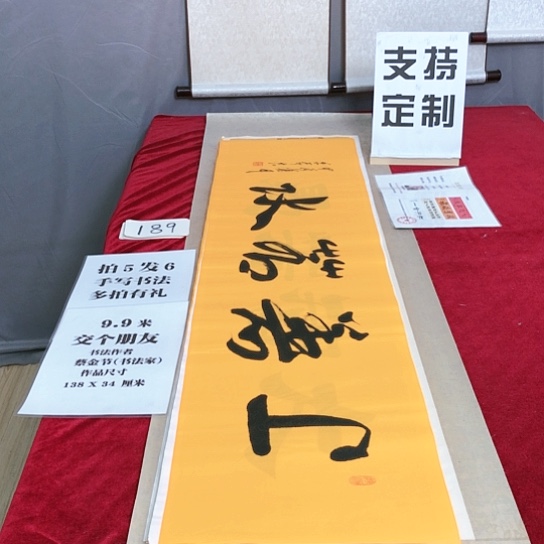 支持
定制
189
拍5发6
手写书法
多拍有礼
9.9 米
交个朋友
书法作者
蔡金节(书法家)
作品尺寸
138 X 34 厘米
上善若水